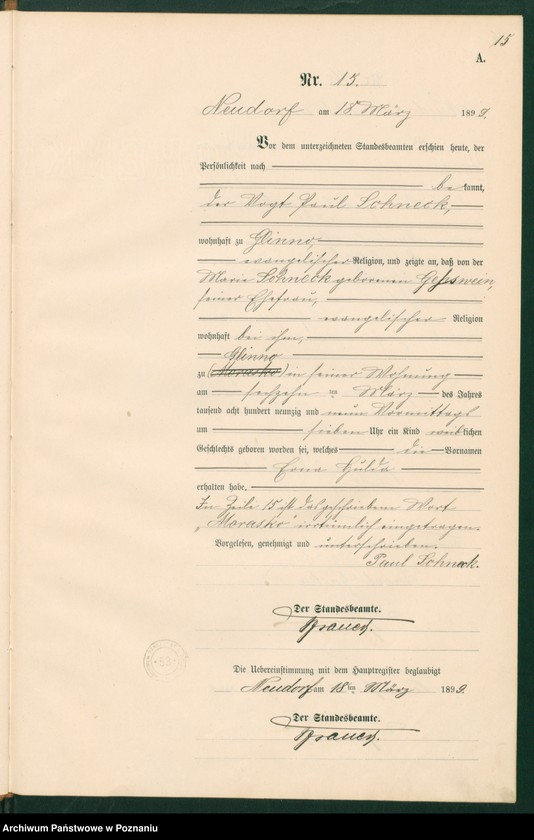 15
A.
Nr. 15.
Neudorf am 18. März 1899.
Vor dem unterzeichneten Standesbeamten erschien heute, der
Persönlichkeit nach
bekannt,
der Vogt Paul Schneck,
wohnhaft zu Glinno,
evangelischer Religion, und zeigte an, daß von der
Marie Schneck geborenen Gesswein,
seiner Ehefrau,
evangelischer Religion
wohnhaft bei ihm,
Glinno
zu (Morasko) in seiner Wohnung
am sechzehn ten März des Jahres
tausend acht hundert neunzig und neun Vormittags
um sieben Uhr ein Kind weiblichen
Geschlechts geboren worden sei, welches die Vornamen
Erna Hulda
erhalten habe.
In Zeile 15 ist das geschriebene Wort
„Morasko" irrtümlich eingetragen.
Vorgelesen, genehmigt und unterschrieben.
Paul Schneck.
Der Standesbeamte.
Die Uebereinstimmung mit dem Hauptregister beglaubigt
Neudorf am 18ten März 1899.
Der Standesbeamte.
Archiwum Państwowe w Poznaniu